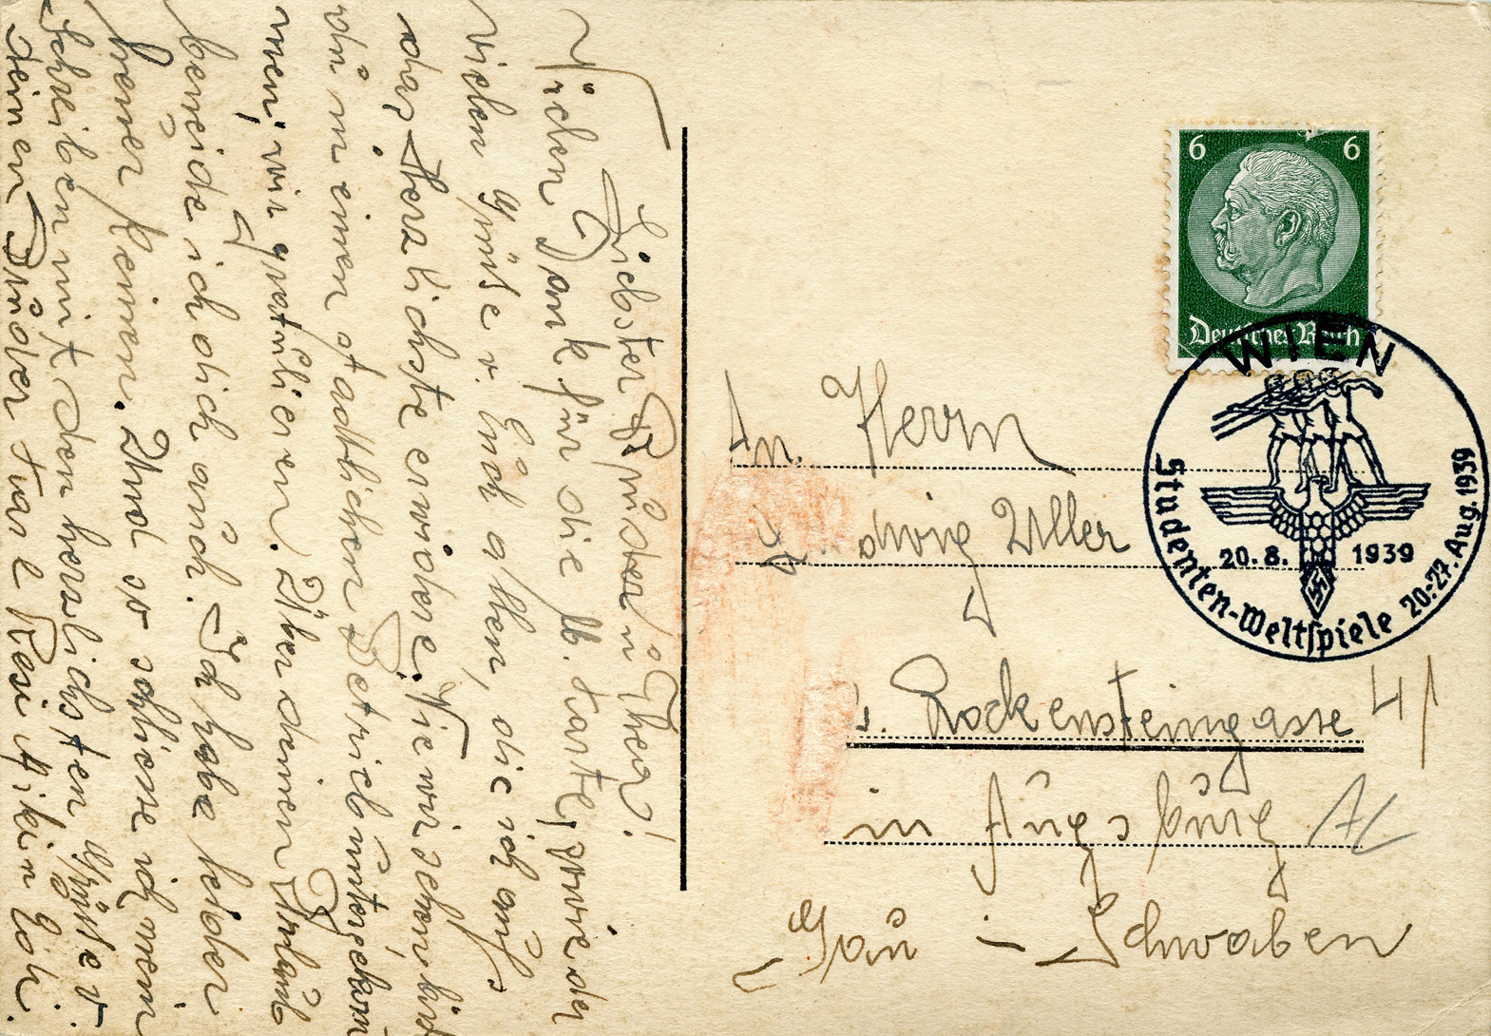 Liebster Brüder u Theg!
Vielen Dank für die lb. Karte, sowie der
vielen Grüße v. Eüch allen, die ich aufs
das Herzlichste erwidere. Wie wir sehen, bist
dü in einen stadtlichen Betrieb üntergekom
men, wir gratulieren. Über deinen Ürlaüb
beneide ich dich aüch. Ich habe leider
heüer keinen. Und so schliese ich mein
Schreiben mit den herzlichsten Grüße v.
deinen Brüder
6 6
Deutsches Reich
WIEN
20.8. 1939
Studenten-Weltspiele 20.-27. Aug. 1939
An. Herrn
Ludwig Uller
Rockensteingasse 41
in Aügsbürg
Gaü - Schwaben